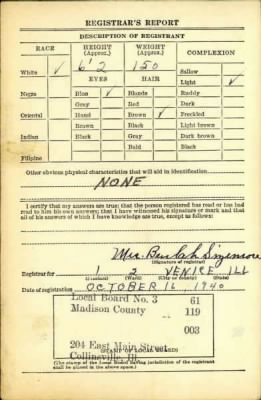 REGISTRAR'S REPORT
DESCRIPTION OF REGISTRANT
RACE HEIGHT (Approx.) WEIGHT (Approx.) COMPLEXION
White ✓ 6'2 150 Sallow
EYES HAIR Light ✓
Negro Blue ✓ Blonde Ruddy
Gray Red Dark
Oriental Hazel Brown ✓ Freckled
Brown Black Light brown
Indian Black Gray Dark brown
Bald Black
Filipino
Other obvious physical characteristics that will aid in identification
NONE
I certify that my answers are true; that the person registered has read or has had
read to him his own answers; that I have witnessed his signature or mark and that
all of his answers of which I have knowledge are true, except as follows:
Mrs. Beulah
(Signature of registrar)
Registrar for 2 VENICE ILL
(Precinct) (Ward) (City or county) (State)
Date of registration OCTOBER 16, 1940
Local Board No. 3 61
Madison County 119
003
204 East Main Street
Collinsville, Ill.
(STAMP OF LOCAL BOARD)
(The stamp of the Local Board having jurisdiction of the registrant
shall be placed in the above space.)